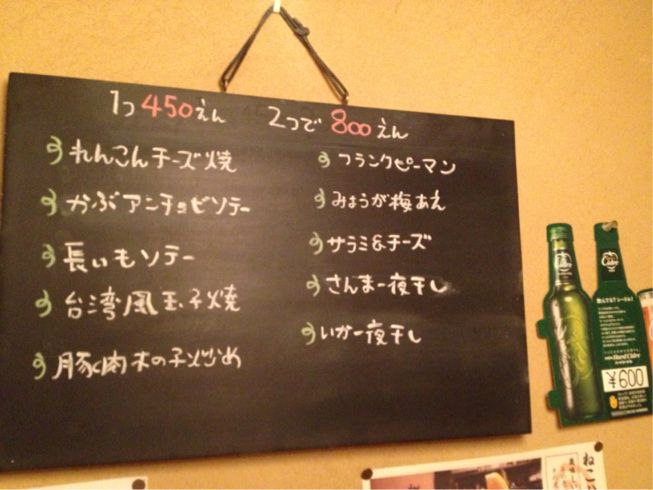 1つ450えん 2つで800えん
れんこんチーズ焼
かぶアンチョビソテー
長いもソテー
台湾風玉子焼
豚肉木の子炒め
フランクピーマン
みょうが梅あえ
サラミ&チーズ
さんま一夜干し
いか一夜干し
Cidre
Hard Cider
¥600
ねこ